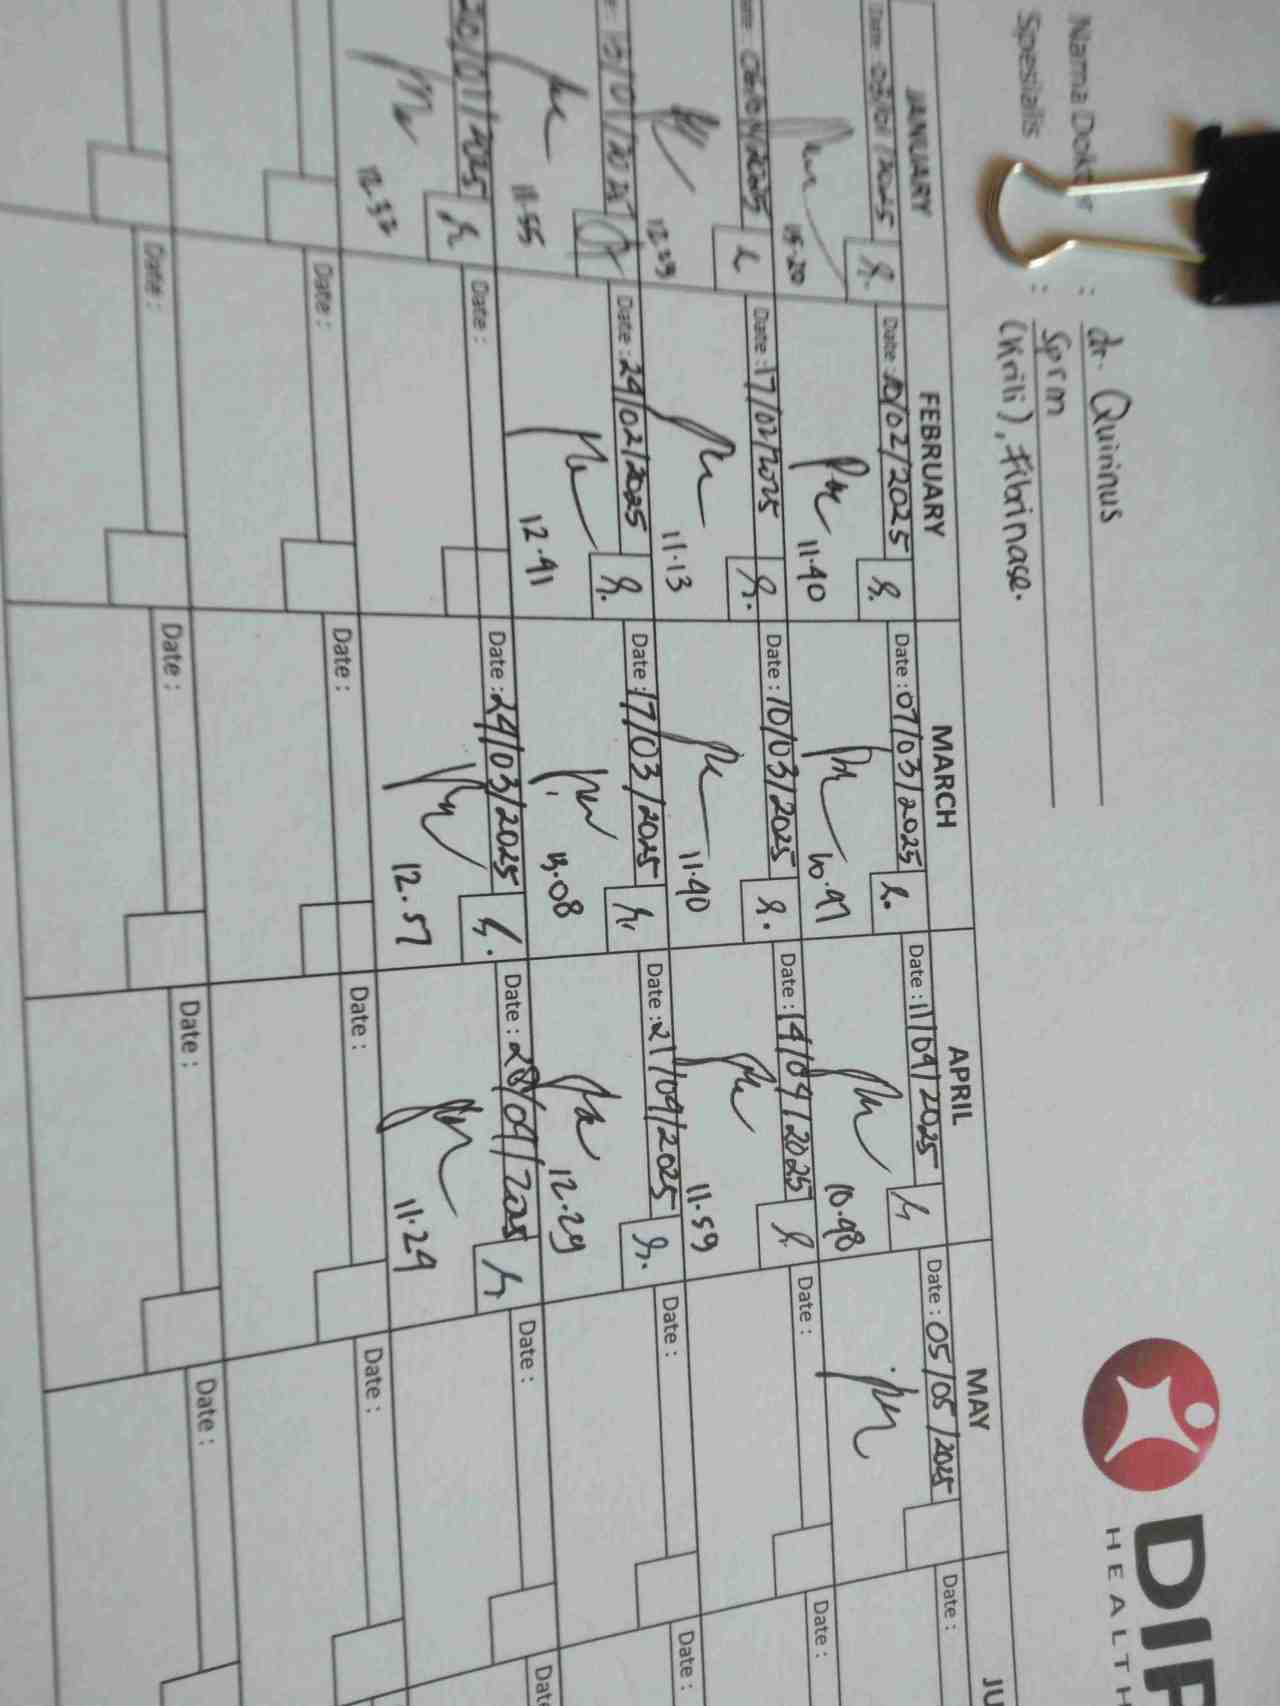 Nama Dokter : dr. Quirinus
Spesialis : Sprm
(Krili), Fibrinase.
HEALTH
JANUARY FEBRUARY MARCH APRIL MAY
Date : 03/01/2025 Date : 10/02/2025 Date : 07/03/2025 Date : 11/04/2025 Date : 05/05/2025 Date :
15.20 11.40 10.47 10.48
Date : 06/01/2025 Date : 17/02/2025 Date : 10/03/2025 Date : 14/04/2025 Date : Date :
12.29 11.13 11.40 11.59
13/01/2025 Date : 24/02/2025 Date : 17/03/2025 Date : 21/04/2025 Date : Date :
11.55 12.41 13.08 12.29
20/01/2025 Date : Date : 24/03/2025 Date : 28/04/2025 Date :
12.33 12.57 11.24
Date : Date : Date : Date :
Date : Date : Date : Date :